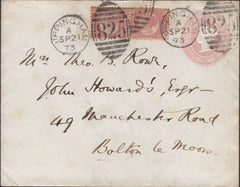 UPPINGHAM
A
SP 21
73
825
UPPINGHAM
A
SP 21
73
825
Mrs Theo. B. Rowe,
John Howard's, Esqr
49 Manchester Road
Bolton le Moors.